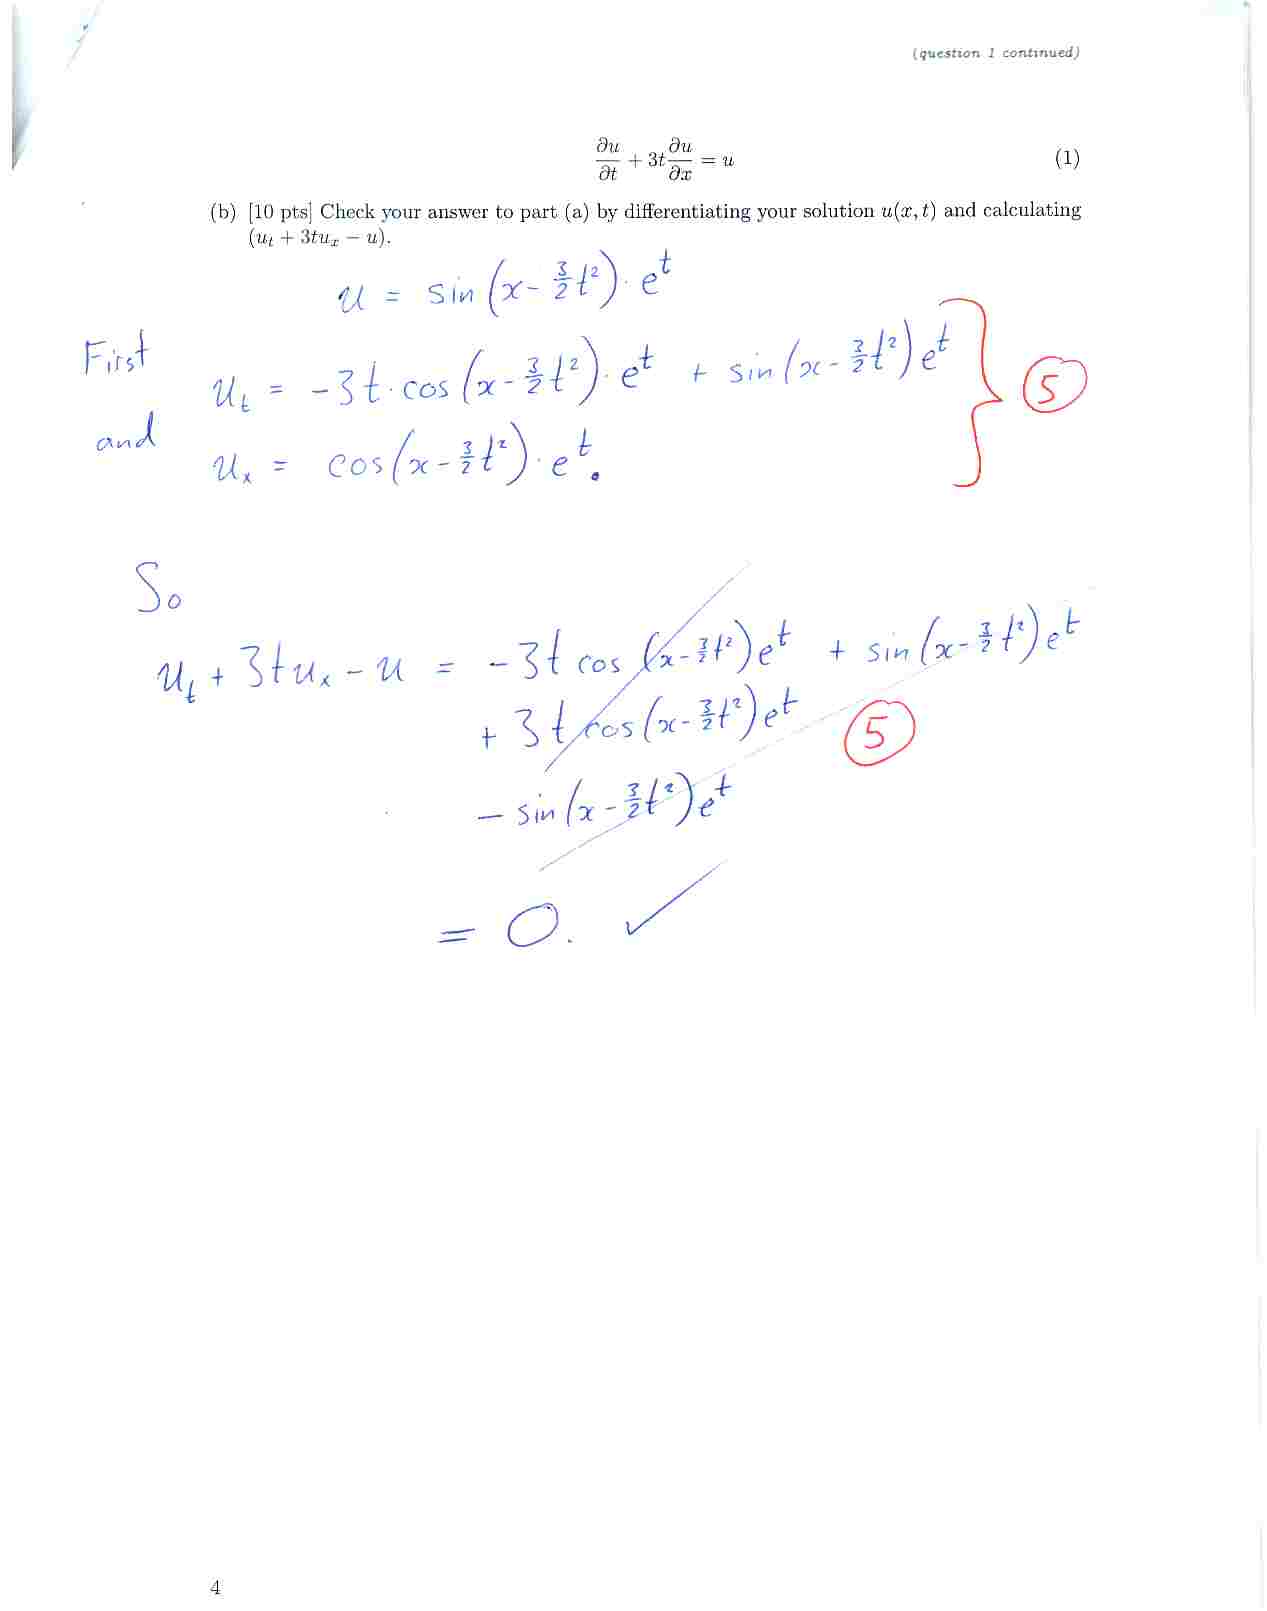 (question 1 continued)
∂u/∂t + 3t ∂u/∂x = u (1)
(b) [10 pts] Check your answer to part (a) by differentiating your solution u(x, t) and calculating
(u_t + 3tu_x − u).
u = sin(x - 3/2 t²) · e^t
First
u_t = -3t · cos(x - 3/2 t²) · e^t + sin(x - 3/2 t²) e^t
5
and
u_x = cos(x - 3/2 t²) · e^t.
So
u_t + 3t u_x - u = -3t cos(x - 3/2 t²) e^t + sin(x - 3/2 t²) e^t
+ 3t cos(x - 3/2 t²) e^t
5
- sin(x - 3/2 t²) e^t
= 0. ✓
4